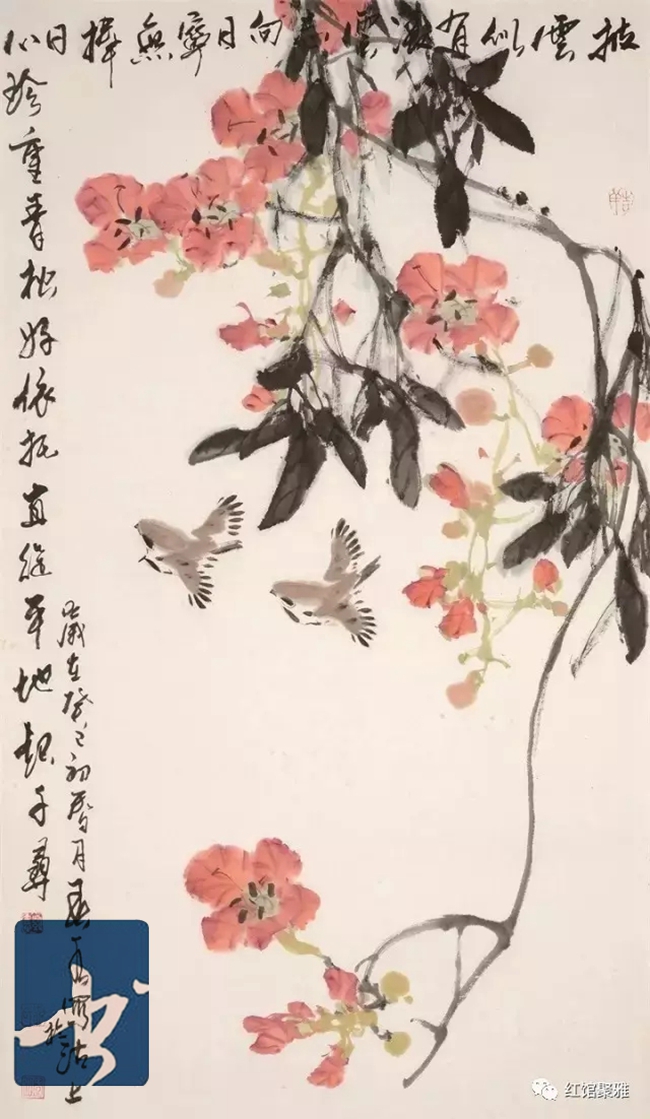 披雲似有凌雲志向日寧無捧日心
珍重青松好依托直從平地起千尋
歲在癸巳初春月 寫於沽上
红馆聚雅